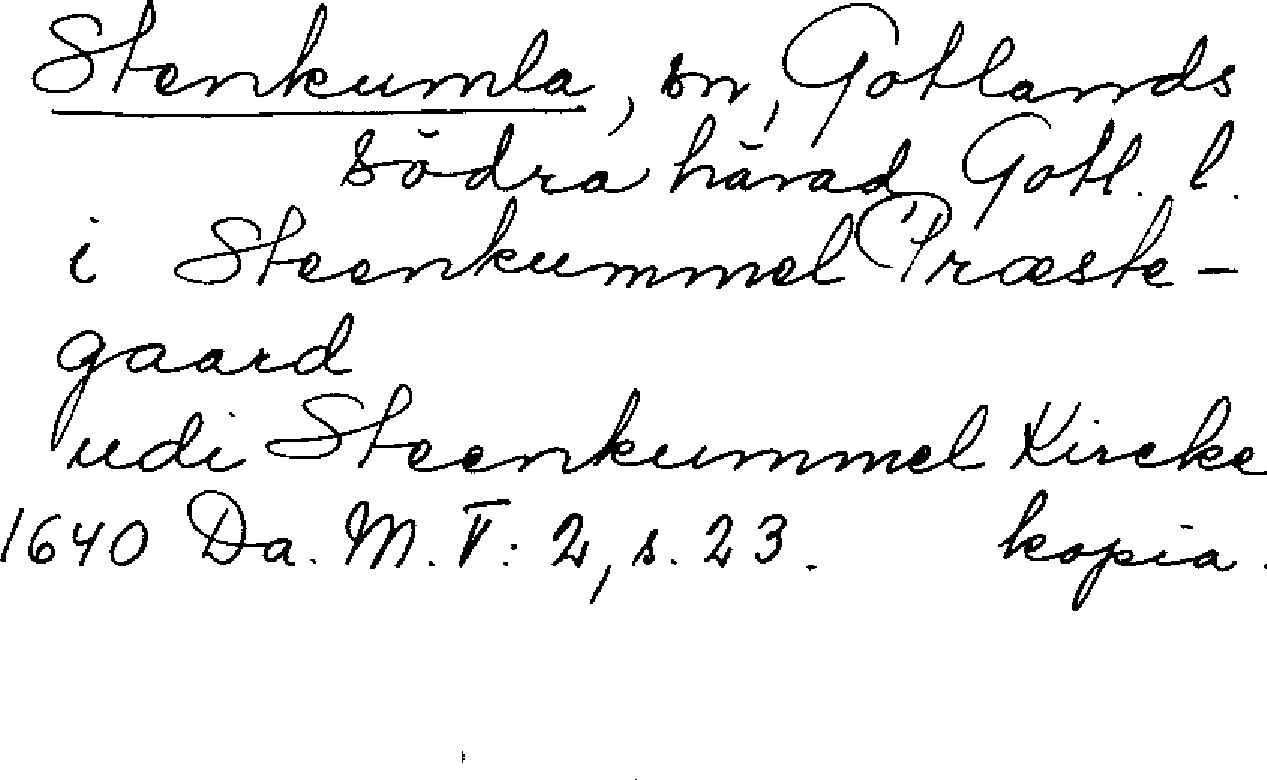 Stenkumla, sn, Gotlands
södra härad, Gotl. l.
i Steenkummel Præste-
gaard
udi Steenkummel Kircke
1640 Da. M. V: 2, s. 23. kopia.